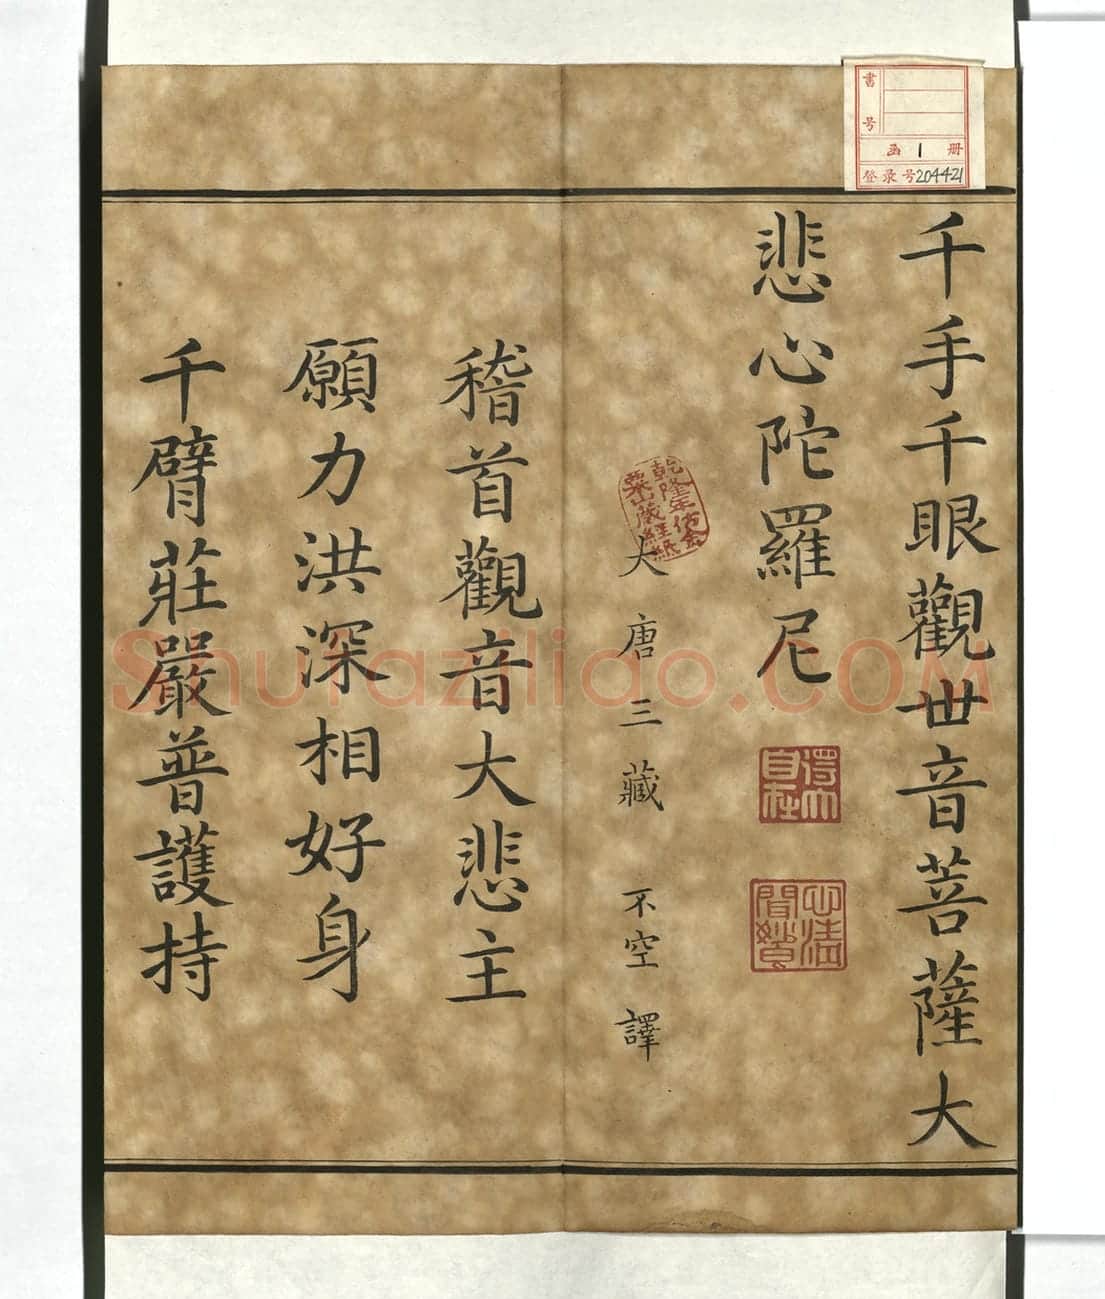 書号
函 1 册
登录号204421
千手千眼觀世音菩薩大
悲心陀羅尼
乾隆年仿金
粟山藏經紙
大唐三藏 不空譯
稽首觀音大悲主
願力洪深相好身
千臂莊嚴普護持
Shufaziliao.COM